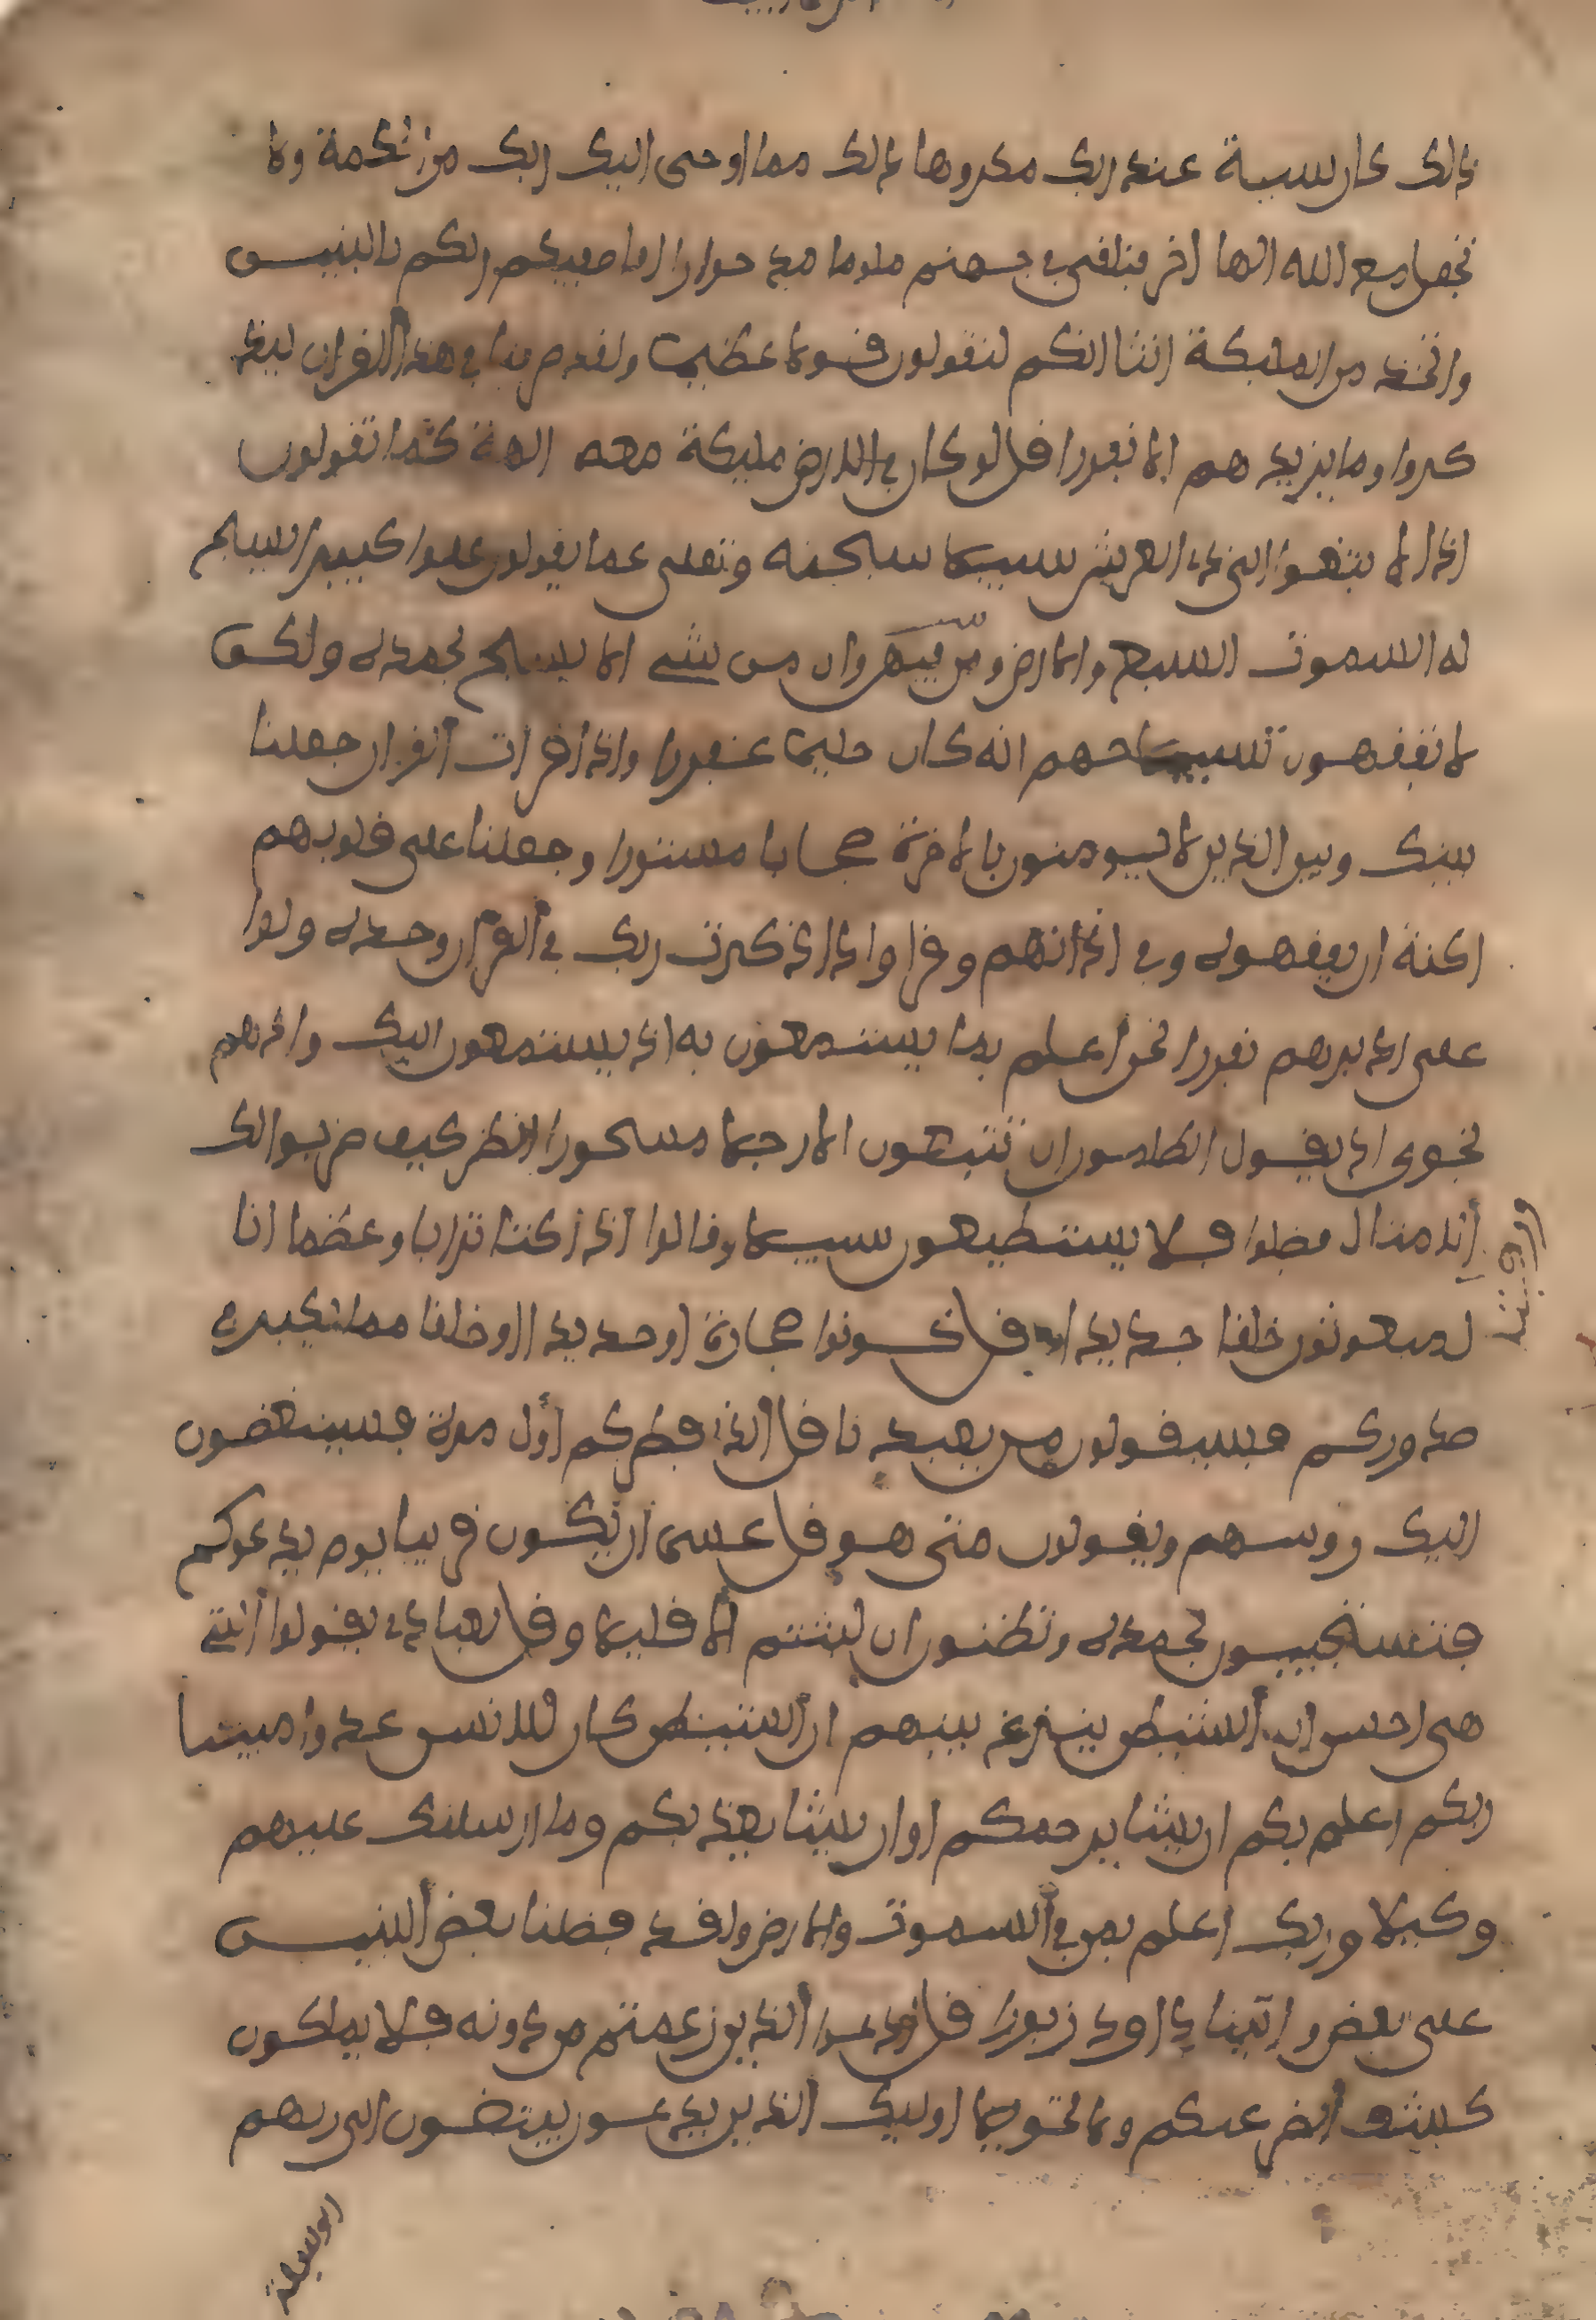 ذالك كان سيئة عند ربك مكروها ذالك مما اوحى اليك ربك من الحكمة ولا
تجعل مع الله الها اخر فتلقى في جهنم ملوما مدحورا افاصفيكم ربكم بالبنين
واتخذ من الملئكة انثا انكم لتقولون قولا عظيما ولقد صرفنا في هذا القران ليذ
كروا وما يزيد هم الا نفورا قل لو كان في الارض مليكة معه الهة كما تقولون
اذا لا بتغوا الى ذى العرش سبيلا سبحنه وتعلى عما يقولون علوا كبيرا تسبح
له السموت السبع والارض ومن فيهن وان من شيء الا يسبح بحمده ولكن
لا تفقهون تسبيحهم انه كان حليما غفورا واذا قرات القران جعلنا
بينك وبين الذين لا يومنون بالاخرة حجابا مستورا وجعلنا على قلوبهم
اكنة ان يفقهوه وفي اذانهم وقرا واذا ذكرت ربك في القران وحده ولوا
على ادبرهم نفورا نحن اعلم بما يستمعون به اذ يستمعون اليك واذ هم
نجوى اذ يقول الظلمون ان تتبعون الا رجلا مسحورا انظر كيف ضربوا لك
الامثال فضلوا فلا يستطيعون سبيلا وقالوا اذا كنا ترابا وعظما انا
لمبعوثون خلقا جديدا قل كونوا حجارة او حديدا او خلقا مما يكبر في
صدوركم فسيقولون من يعيد نا قل الذى فطركم اول مرة فسينغضون
اليك روسهم ويقولون متى هو قل عسى ان يكون قريبا يوم يدعوكم
فتستجيبون بحمده وتظنون ان لبثتم الا قليلا وقل لعبادى يقولوا التي
هى احسن ان الشيطن ينزغ بينهم ان الشيطن كان للانسن عدوا مبينا
ربكم اعلم بكم ان يشا يرحمكم او ان يشا يعذبكم وما ارسلنك عليهم
وكيلا وربك اعلم بمن في السموت والارض ولقد فضلنا بعض النبيين
على بعض واتينا داوود زبورا قل ادعوا الذين زعمتم من دونه فلا يملكون
كشف الضر عنكم ولا تحويلا اوليك الذين يدعون يبتغون الى ربهم
الوسيلة